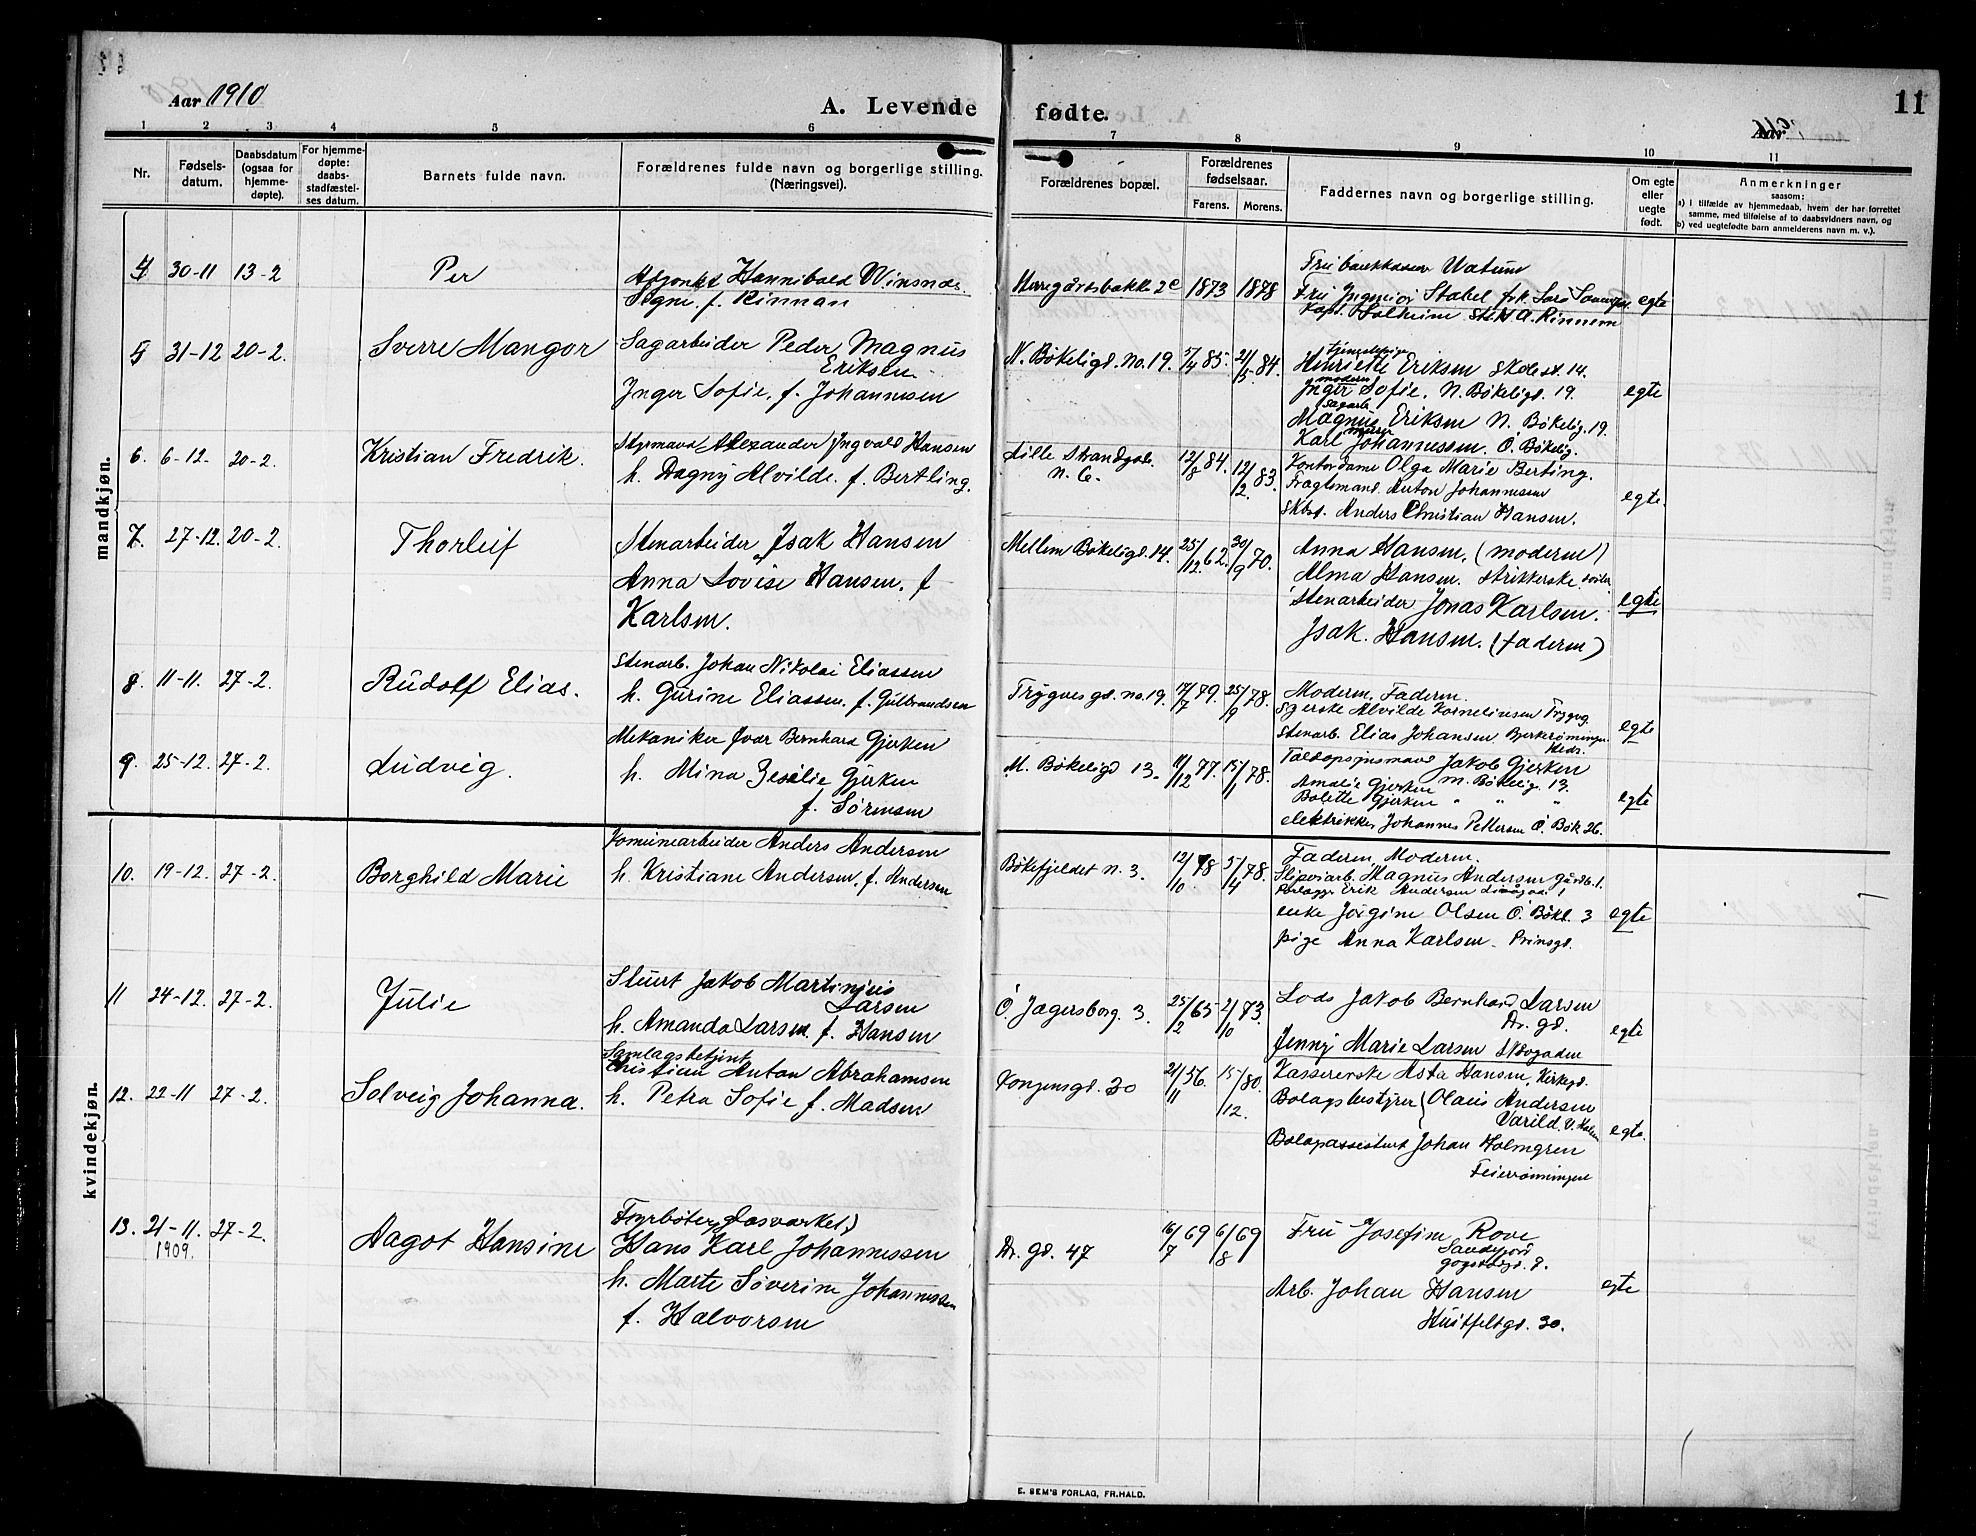 Aar 1910
A. Levende fødte.
11
Aar
1 2 3 4 5 6 7 8 9 10 11
Nr.
Fødsels-
datum.
Daabsdatum
(ogsaa for
hjemme-
døpte).
For hjemme-
døpte:
daabs-
stadfæstel-
ses datum.
Barnets fulde navn.
Forældrenes fulde navn og borgerlige stilling.
(Næringsvei).
Forældrenes bopæl.
Forældrenes
fødselsaar.
Farens. Morens.
Faddernes navn og borgerlige stilling.
Om egte
eller
uegte
født.
Anmerkninger
saasom:
a) i tilfælde av hjemmedaab, hvem der har forrettet
samme, med tilføielse af to daabsvidners navn, og
b) ved uegtefødte barn anmelderens navn m. v.).
mandkjøn.
4 30-11 13-2 Per
Adjonkt Hannibald Winsnes.
Signe f. Rinnan
Herregårdsbakke 2c 1873 1878
Fru
Fru Ingeborg Stabel
Kapt. Solheim
egte
5 31-12 20-2. Sverre Mangor
Sagarbeider Peder Magnus
Eriksen
Inger Sofie, f. Johannesen
N. Bøkeligd. No. 19. 5/4 85. 21/5 84.
Henriette Eriksen 14.
moderen
Inger Sofie, N. Bøkeligd. 19.
sagarb.
Magnus Eriksen N. Bøkelig. 19.
Karl Johannessen. Ö. Bøkelig.
egte
6. 6-12. 20-2. Kristian Fredrik.
Styrmand Alexander Ingvald Hansen
h. Dagny Alvilde. f. Bertling.
Lille Strandgade.
N. 6.
12/8 84. 12/12 83.
Kontordame Olga Marie Berting.
Fragtemand. Anton Johannessen
Skbst. Anders Christian Hansen.
egte.
7. 27-12. 20-2. Thorleif
Stenarbeider Isak Hansen
Anna Lovise Hansen. f
Karlsen.
Mellem Bøkeligd. 14. 25/12 62. 30/9 70.
Anna Hansen. (moderen)
Alma Hansen. strikkerske
Stenarbeider Jonas Karlsen.
Isak. Hansen. (faderen)
egte
8. 11-11. 27-2. Rudolf Elias.
Stenarb. Johan Nikolai Eliassen
h. Gurine Eliassen. f. Gulbrandsen
Trygves gd. no. 19. 17/7 79. 25/9 78.
Moderen, Faderen.
Syerske Alvilde Kornelinsen Trygvg.
Stenarb. Elias Johansen
egte
9. 25-12. 27-2. Ludvig.
Mekaniker Ivar Bernhard Gjerken
h. Mina Gjerken
f. Sørensen
M. Bøkeligd 13. 77. 15/1 78.
Toldopsynsmand Jakob Gjerken
Amalie Gjerken M. Bøkelig. 13.
Bolette Gjerken " " "
elektriker Johannes Pettersen Ö. Bøk 26.
egte
kvindekjøn.
10. 19-12. 27-2. Borghild Marie
Komunearbeider Anders Andersen
h. Kristiane Andersen, f. Andersen
Bøkefjeldet n. 3. 12/10 78 5/4 78.
Faderen, Moderen.
Sliperiarb. Magnus Andersen
Erik Andersen
enke Jörgine Olsen Ö. Bökl. 3
pige Anna Karlsen. Prinsgd.
egte
11 24-12. 27-2. Julie
Stuert Jakob Martinius
Larsen
h. Amanda Larsen f. Hansen
Ö. Jagersborg. 3. 25/2 65 2/10 73.
Lods Jakob Bernhard Larsen
Dr. gd.
Jenny Marie Larsen
egte
12. 22-11 27-2. Solveig Johanna.
Samlagsbetjent
Christian Anton Abrahamsen
h. Petra Sofie f. Madsen
Kongensgd. 30 21/11 56. 15/12 80.
Kassererske Asta Hansen, Kirkegd.
Bolagsbestyrer (Olaus Andersen
Varild.
Bolagsassistent Johan Holmgren
Feierrønningen
egte.
13. 21-11. 27-2. Aagot Hansine
1909.
Fyrbøter (Gasværket)
Hans Karl Johannessen
h. Marte Söverine Johannessen
f. Halvorsen
Dr. gd. 47 16/7 69 6/8 69
Fru Josefine Rove
Sandefjord
Arb. Johan Hansen
Huitfeltgd. 30.
egte
E. SEM'S FORLAG, FR.HALD.